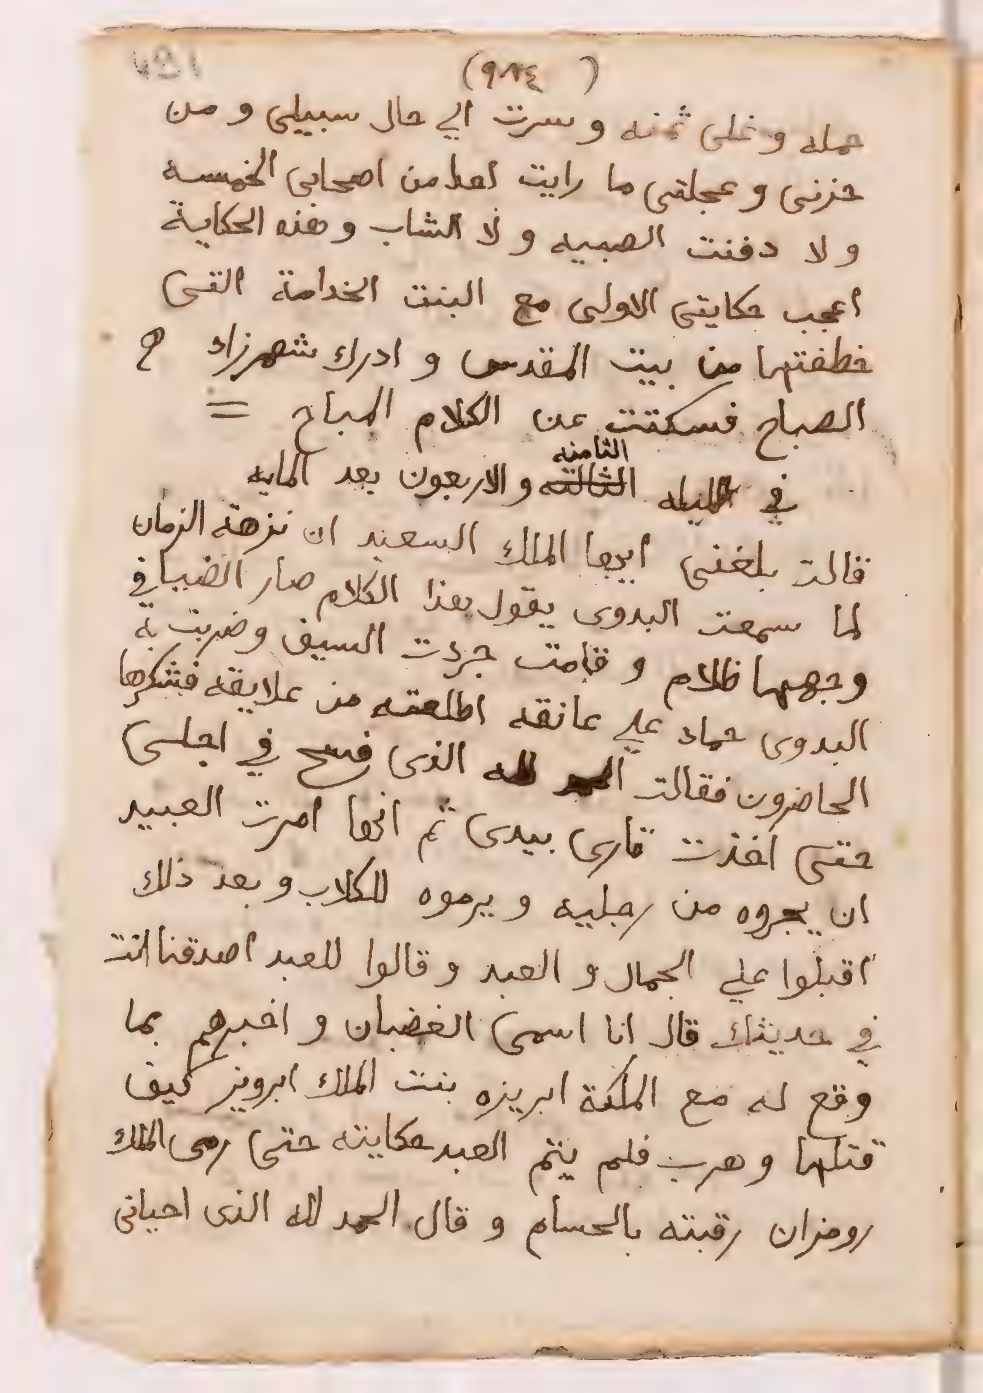 (٩٨٤)
حمله وغلى ثمنه وسرت الي حال سبيلى و من
حزنى وعجلتى ما رايت احدا من اصحابى الخمسه
و لا دفنت الصبيه و لا الشاب وهذه الحكاية
اعجب حكايتى الاولى مع البنت الخدامة التى
خطفتها من بيت المقدس و ادرك شهرزاد
الصباح فسكتت عن الكلام المباح =
في الليله الثالثه الثامنه والاربعون بعد المايه
قالت بلغنى ايها الملك السعيد ان نزهة الزمان
لما سمعت البدوى يقول هذا الكلام صار الضيا في
وجهها ظلام و قامت جردت السيف وضربت به
البدوى حماد علي عاتقه اطلعته من علايقه فشكرها
الحاضرون فقالت الحمد لله الذى فسح في اجلى
حتى اخذت تارى بيدى ثم انها امرت العبيد
ان يجروه من رجليه و يرموه للكلاب و بعد ذلك
اقبلوا علي الجمال و العبد و قالوا للعبد اصدقنا انت
في حديثك قال انا اسمى الغضبان و اخبرهم بما
وقع له مع الملكة ابريزه بنت الملك ابرويز كيف
قتلها و هرب فلم يتم العبد حكايته حتى رمى الملك
رومزان رقبته بالحسام و قال الحمد لله الذى احيانى